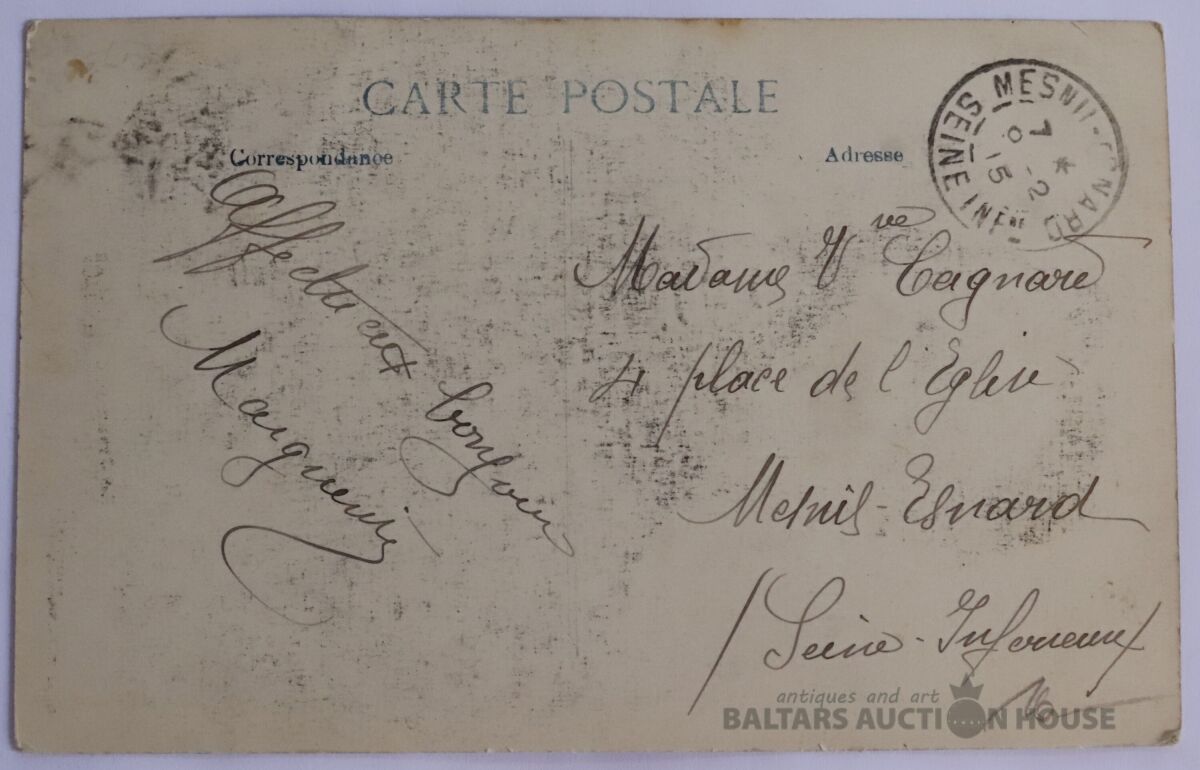 CARTE POSTALE
Correspondance
Adresse
MESNIL-ESNARD
SEINE INFRE
7 * -2
15
Affectueux bonjour
Marguerite
Madame Vve Cagnard
4 place de l'Eglise
Mesnil-Esnard
(Seine-Inferieure)
16
antiques and art
BALTARS AUCTION HOUSE